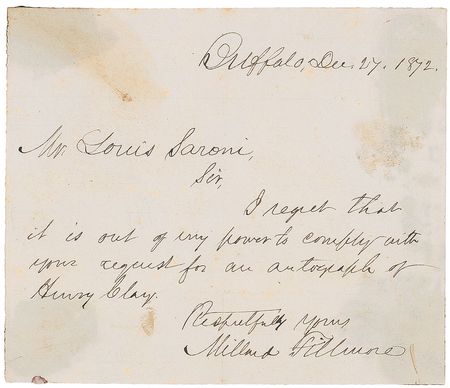 Buffalo, Dec. 27. 1872.
Mr. Louis Saroni,
Sir,
I regret that
it is out of my power to comply with
your request for an autograph of
Henry Clay.
Respectfully yours
Millard Fillmore